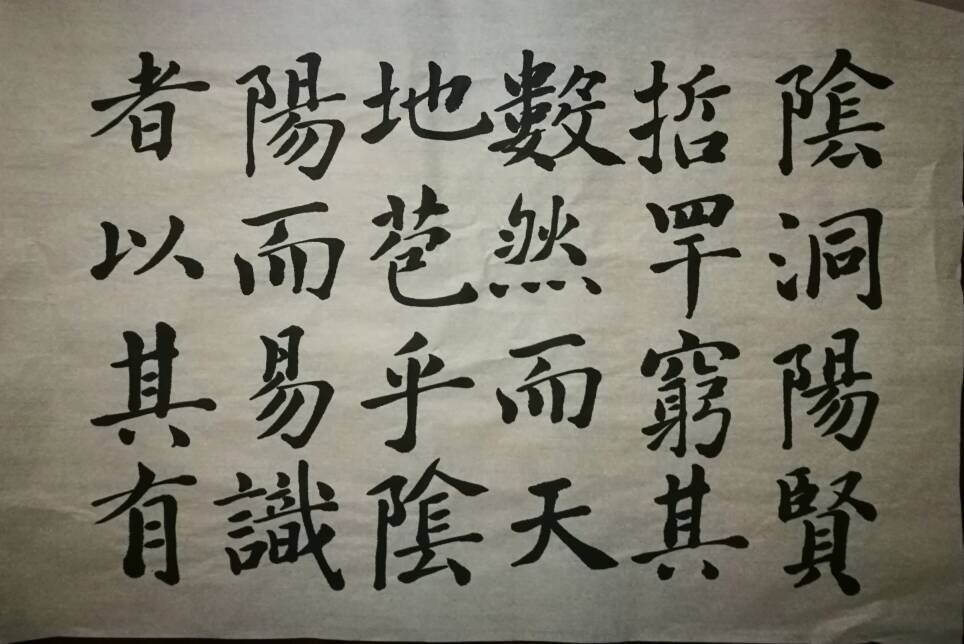 陰洞陽賢
哲罕窮其
數然而天
地苞乎陰
陽而易識
者以其有